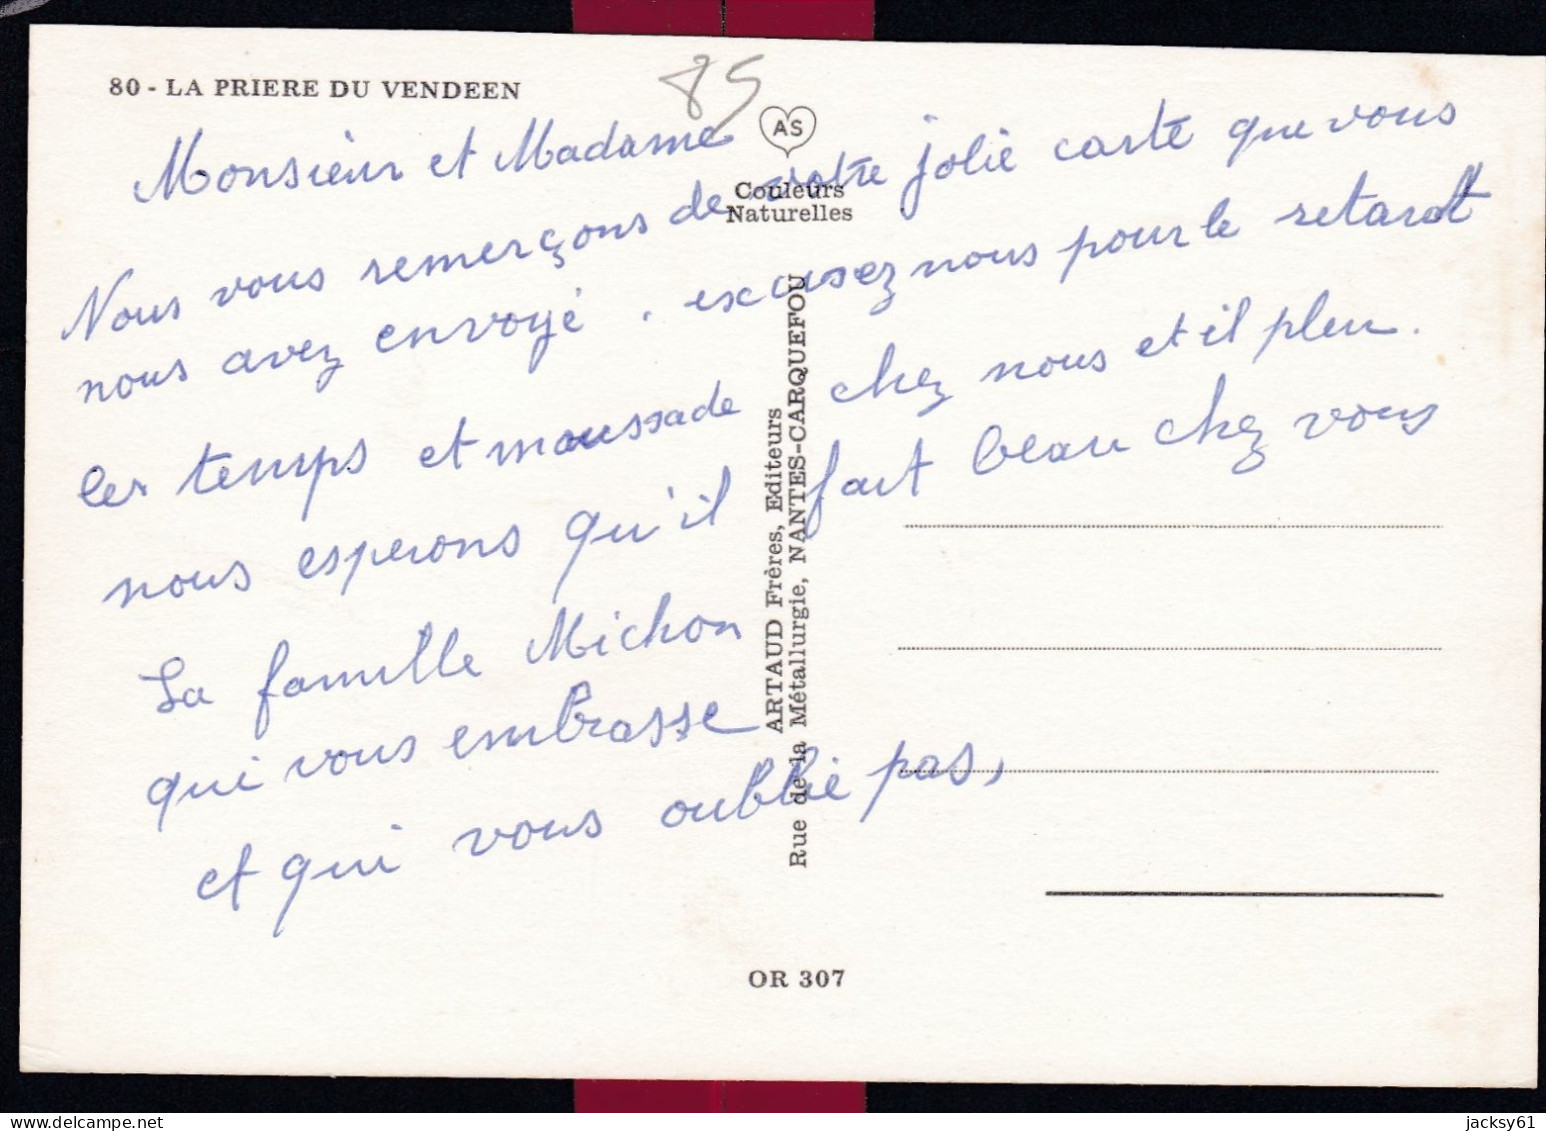 80 - LA PRIERE DU VENDEEN
85
AS
Couleurs
Naturelles
Monsieur et Madame
Nous vous remerçons de votre jolie carte que vous
nous avez envoyé . excusez nous pour le retardt
les temps et moussade chez nous et il pleu.
nous esperons qu'il fait beau chez vous
La famille Michon
qui vous embrasse
et qui vous oublie pas,
ARTAUD Frères, Editeurs
Rue de la Métallurgie, NANTES-CARQUEFOU
OR 307
www.delcampe.net
jacksy61